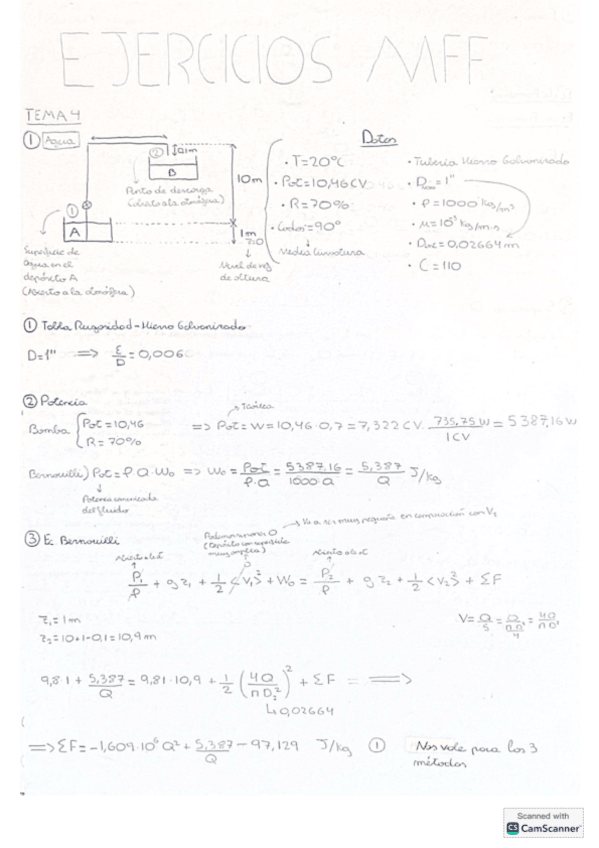 EJERCICIOS MFF
TEMA 4
① Agua
② 0,1m
B
10m
Punto de descarga
(abierto a la atmósfera)
①
A
1m
z=0
Superficie de
agua en el
depósito A
(Abierto a la atmósfera)
Nivel de ref
de altura
Datos
· T=20°C
· Pot=10,46CV
· R=70%
· Codos=90°
Media curvatura
· Tubería Hierro Galvanizado
· D = 1"
· ρ = 1000 kg/m³
· μ=10⁻³ kg/m·s
· Dint = 0,02664 m
· C = 110
① Tabla Rugosidad - Hierro Galvanizado
D=1" => ε/D = 0,006
② Potencia
Teórica
Bomba { Pot = 10,46
R = 70%
=> Pot = W = 10,46 · 0,7 = 7,322 CV · 735,75 W / 1 CV = 5387,16 W
Bernouilli) Pot = ρ Q · W₀ => W₀ = Pot / ρ·Q = 5387,16 / 1000·Q = 5,387 / Q J/kg
Potencia comunicada
del fluido
③ Ec Bernouilli
(Depósito con superficie
muy amplia)
Va a ser muy pequeña en comparación con V₂
Abierto a la at
Abierto a la at
P₁/ρ + gz₁ + 1/2 <V₁>² + W₀ = P₂/ρ + gz₂ + 1/2 <V₂>² + ΣF
z₁ = 1m
z₂ = 10+1-0,1 = 10,9 m
V = Q/S = Q / πD²/4 = 4Q / πD²
9,8·1 + 5,387/Q = 9,81·10,9 + 1/2 (4Q / πD₂²)² + ΣF = =>
0,02664
=> ΣF = -1,609·10⁶ Q² + 5,387/Q - 97,129 J/kg ①
Nos vale para los 3
métodos
Scanned with
CS CamScanner